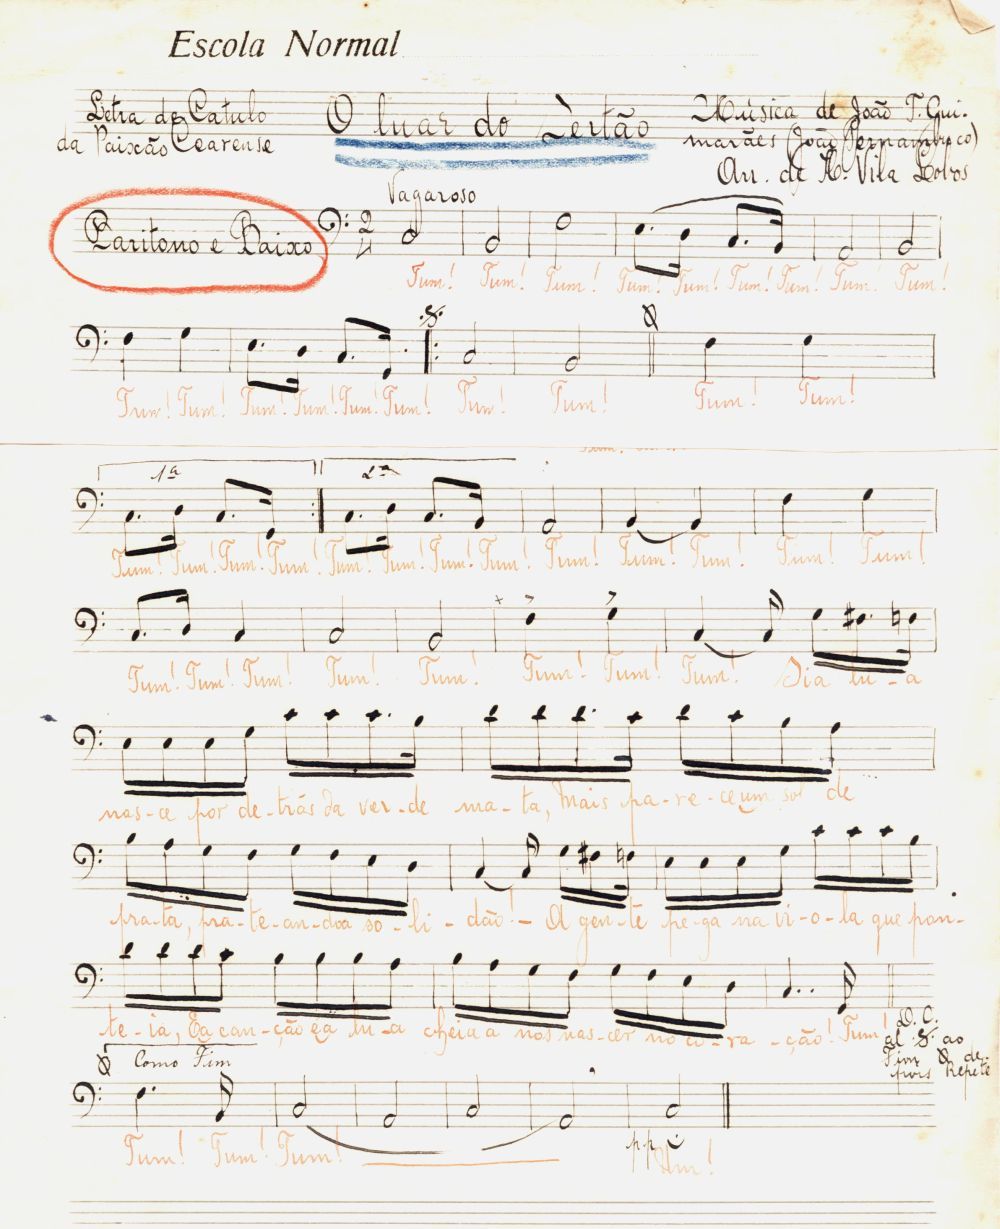 Escola Normal
Letra de Catulo
da Paixão Cearense
O luar do Sertão
Música de João T. Gui-
marães (João Pernambuco)
Arr. de H. Vila Lobos
Vagaroso
Baritono e Baixo
Tum! Tum! Tum! Tum! Tum! Tum! Tum! Tum! Tum!
Tum! Tum! Tum! Tum! Tum! Tum! Tum! Tum! Tum! Tum!
1ª 2ª
Tum! Tum! Tum! Tum! Tum! Tum! Tum! Tum! Tum! Tum! Tum! Tum! Tum!
Tum! Tum! Tum! Tum! Tum! Tum! Tum! Tum! Si a lu-a
nas-ce por de-trás da ver-de ma-ta, Mais pa-re-ce um sol de
pra-ta, pra-te-an-do a so-li-dão! - A gen-te pe-ga na vi-o-la que pon-
te-ia, E a can-ção e a lu-a cheia a nos nas-cer no co-ra-ção! Tum!
D. C.
al 𝄋 ao
Fim de-
pois Repete
Como Fim
Tum! Tum! Tum!
pp Um!